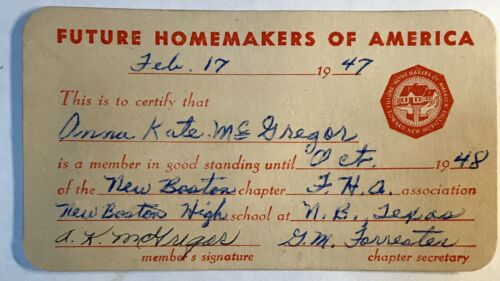 FUTURE HOMEMAKERS OF AMERICA
Feb. 17 1947
FUTURE HOMEMAKERS OF AMERICA
TOWARD NEW HORIZONS
This is to certify that
Anna Kate McGregor
is a member in good standing until Oct. 1948
of the New Boston chapter F.H.A. association
New Boston High school at N.B., Texas
A. K. McGregor G.M. Forrester
member's signature chapter secretary